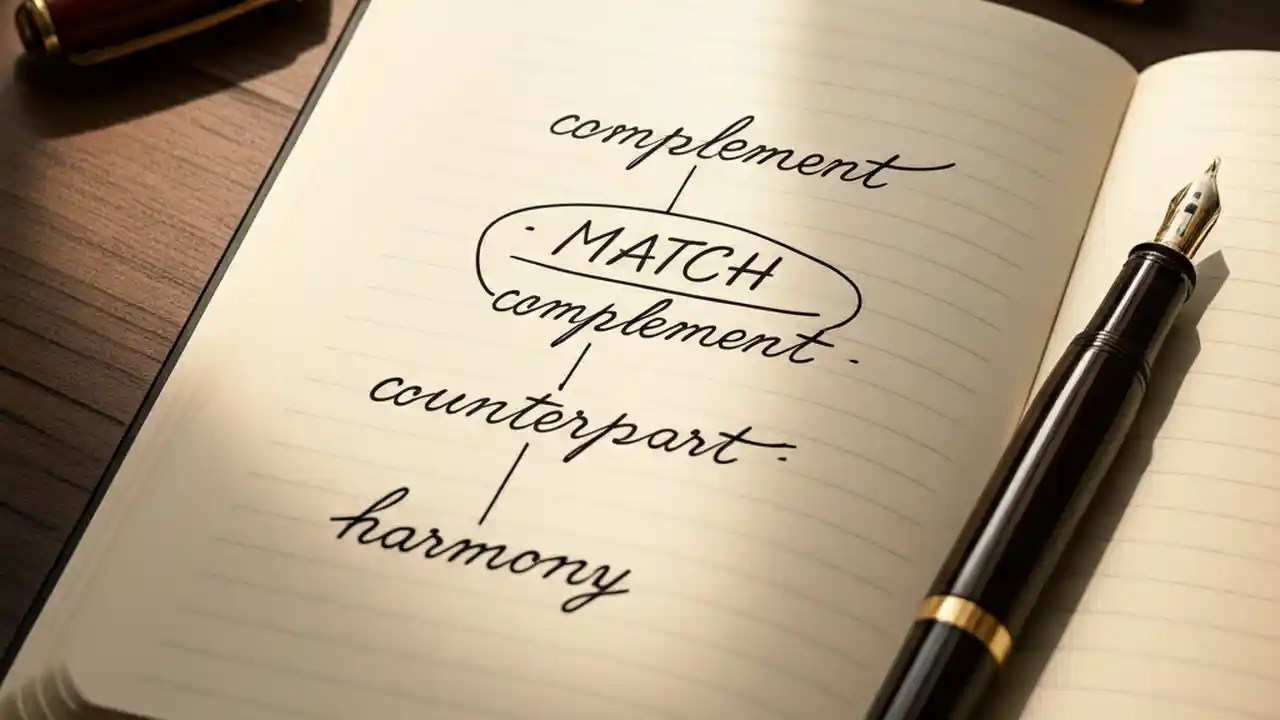 complement
MATCH
complement.
counterpart.
harmony